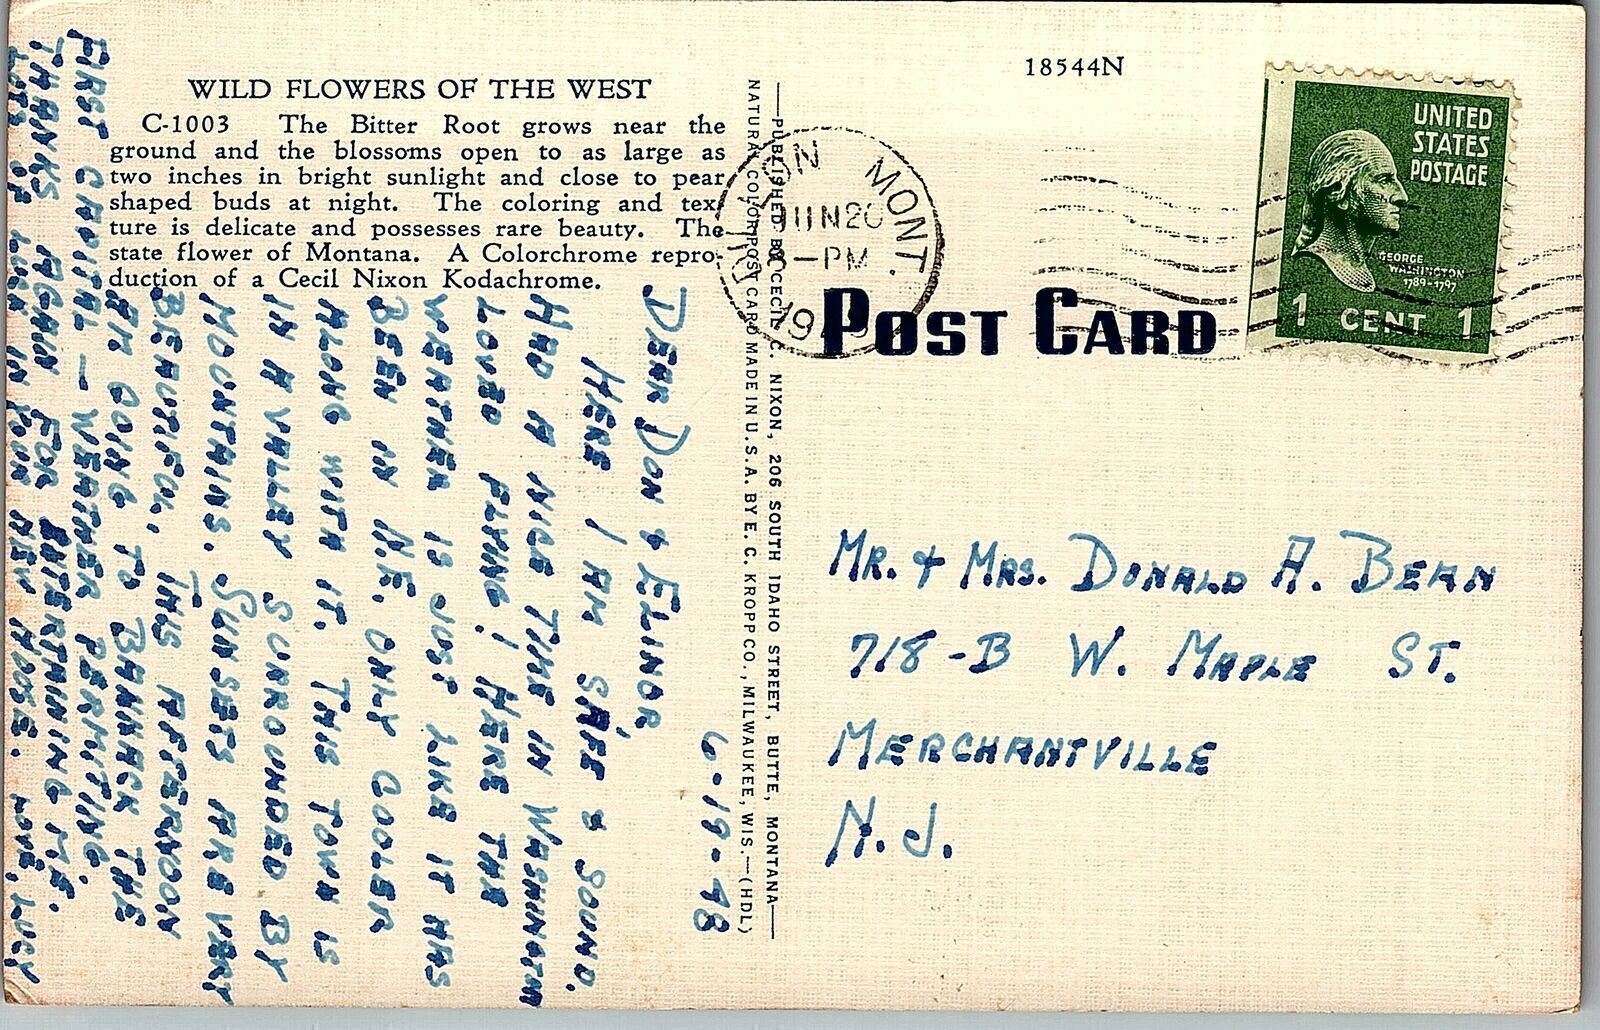 18544N
WILD FLOWERS OF THE WEST
C-1003 The Bitter Root grows near the
ground and the blossoms open to as large as
two inches in bright sunlight and close to pear
shaped buds at night. The coloring and tex-
ture is delicate and possesses rare beauty. The
state flower of Montana. A Colorchrome repro-
duction of a Cecil Nixon Kodachrome.
6-19-48
DEAR DON & ELINOR,
HERE I AM SAFE & SOUND.
HAD A NICE TIME IN WASHINGTON
LOVED FLYING! HERE THE
WEATHER IS JUST LIKE IT HAS
BEEN IN N.E. ONLY COOLER
ALONG WITH IT. THIS TOWN IS
IN A VALLEY SURROUNDED BY
MOUNTAINS. SUNSETS ARE VERY
BEAUTIFUL. THIS AFTERNOON
AM GOING TO BANNACK THE
FIRST CAPITAL – WEATHER PERMITING.
THANKS AGAIN FOR ENTERTAINING ME.
LOTS OF LUCK IN YOUR NEW HOUSE. LOVE, LUCY
—PUBLISHED BY CECIL C. NIXON, 206 SOUTH IDAHO STREET, BUTTE, MONTANA—
NATURAL COLOR POST CARD MADE IN U.S.A. BY E. C. KROPP CO., MILWAUKEE, WIS.—(HDL)
MONT.
JUN 20
PM
19
UNITED
STATES
POSTAGE
GEORGE
WASHINGTON
1789-1797
1 CENT 1
POST CARD
MR. & MRS. DONALD A. BEAN
718-B W. MAPLE ST.
MERCHANTVILLE
N. J.